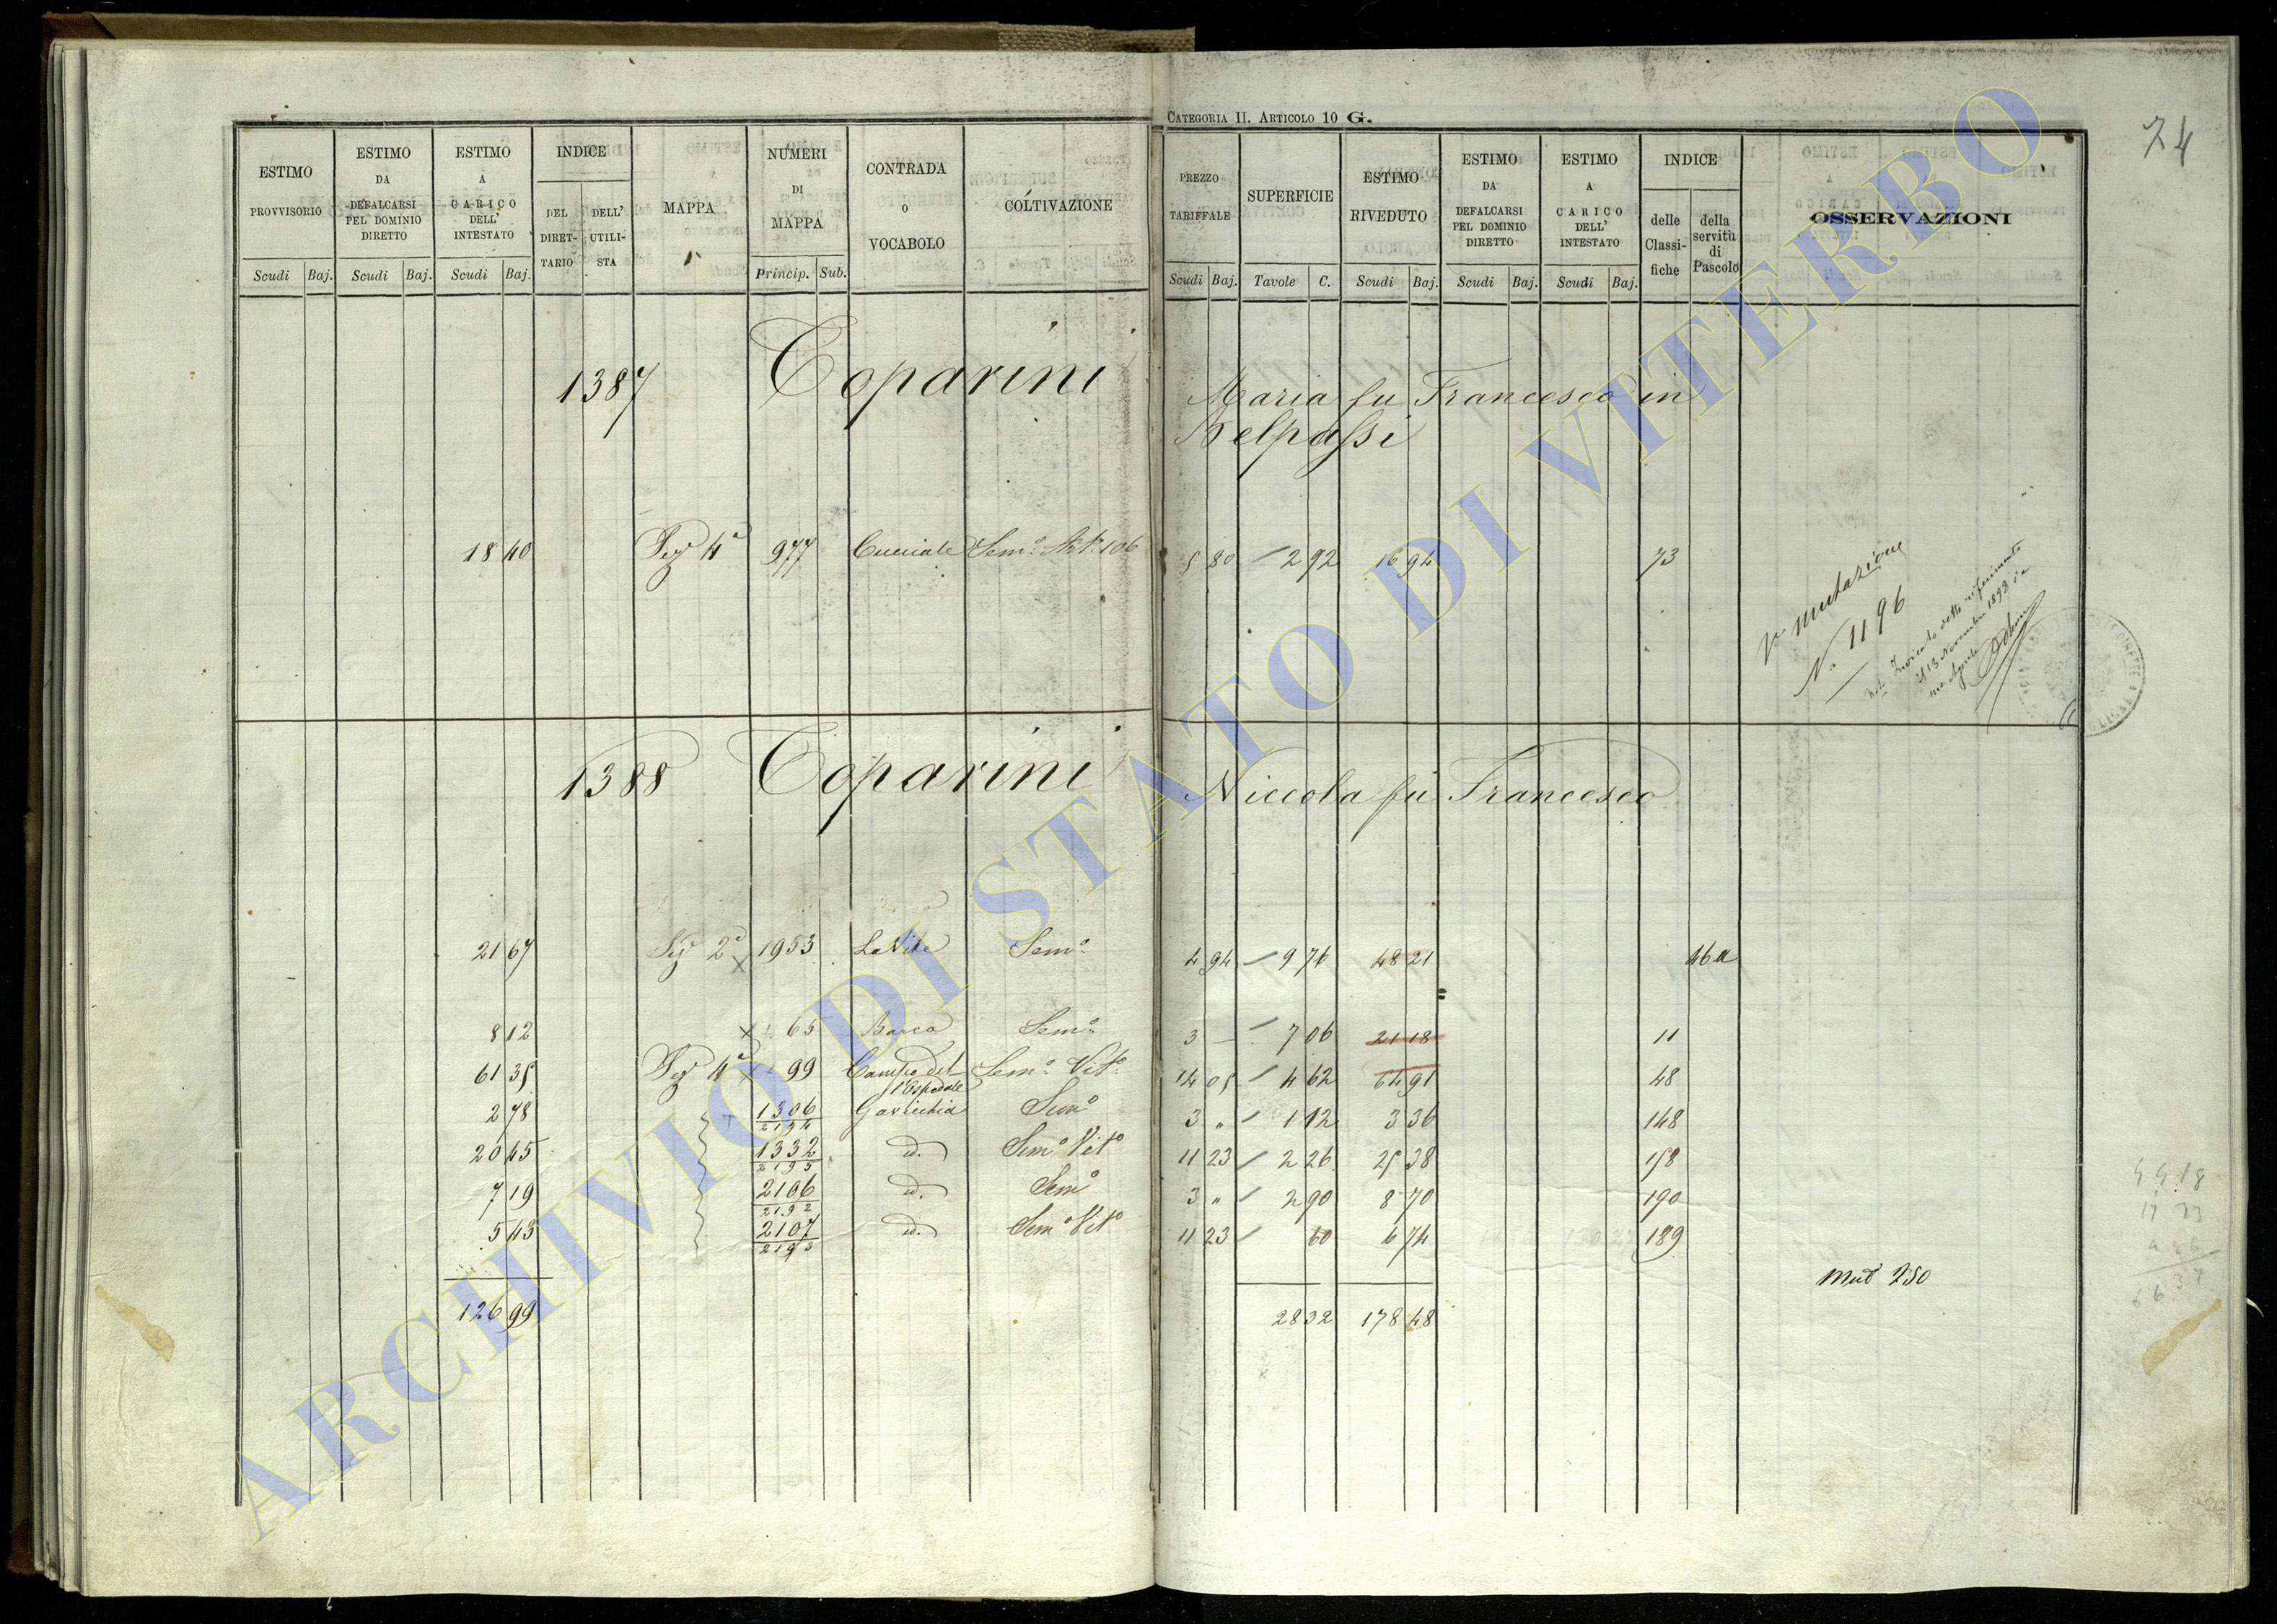 CATEGORIA II. ARTICOLO 10 G.
74
ESTIMO PROVVISORIO
ESTIMO DA DEFALCARSI PEL DOMINIO DIRETTO
ESTIMO A CARICO DELL' INTESTATO
INDICE
DEL DIRET-TARIO
DELL' UTILI-STA
MAPPA
NUMERI DI MAPPA
CONTRADA O VOCABOLO
COLTIVAZIONE
PREZZO TARIFFALE
SUPERFICIE
ESTIMO RIVEDUTO
ESTIMO DA DEFALCARSI PEL DOMINIO DIRETTO
ESTIMO A CARICO DELL' INTESTATO
INDICE
delle Classi-fiche
della servitù di Pascolo
OSSERVAZIONI
Scudi Baj. Scudi Baj. Scudi Baj. Princip. Sub.
Scudi Baj. Tavole C. Scudi Baj. Scudi Baj. Scudi Baj.
1387 Coparini Maria fu Francesco in
Belpassi
18 40 Sez 4ª 977 Cucciale Semº 106 5 80 2 92 16 94 73
Vª mutazione
Nº 1196
il 13 Novembre 1892
1388 Coparini Niccola fu Francesco
21 67 Sez 2ª 1953 La Vite Semº 4 94 9 76 48 21 46a
8 12 65 Barca Semº 3 — 7 06 21 18 11
61 35 Sez 4ª 99 Campo del Semº Vitº 14 05 4 62 64 91 48
l'Ospedale
2 78 1306 Gavicchia Semº 3 " 1 12 3 36 148
2194
20 45 1332 id. Semº Vitº 11 23 2 26 25 38 158
2195
7 19 2106 id. Semº 3 " 2 90 8 70 190
2192
5 43 2107 id. Semº Vitº 11 23 60 6 74 189
2193
Mutº 250
126 99 28 32 178 48
ARCHIVIO DI STATO DI VITERBO